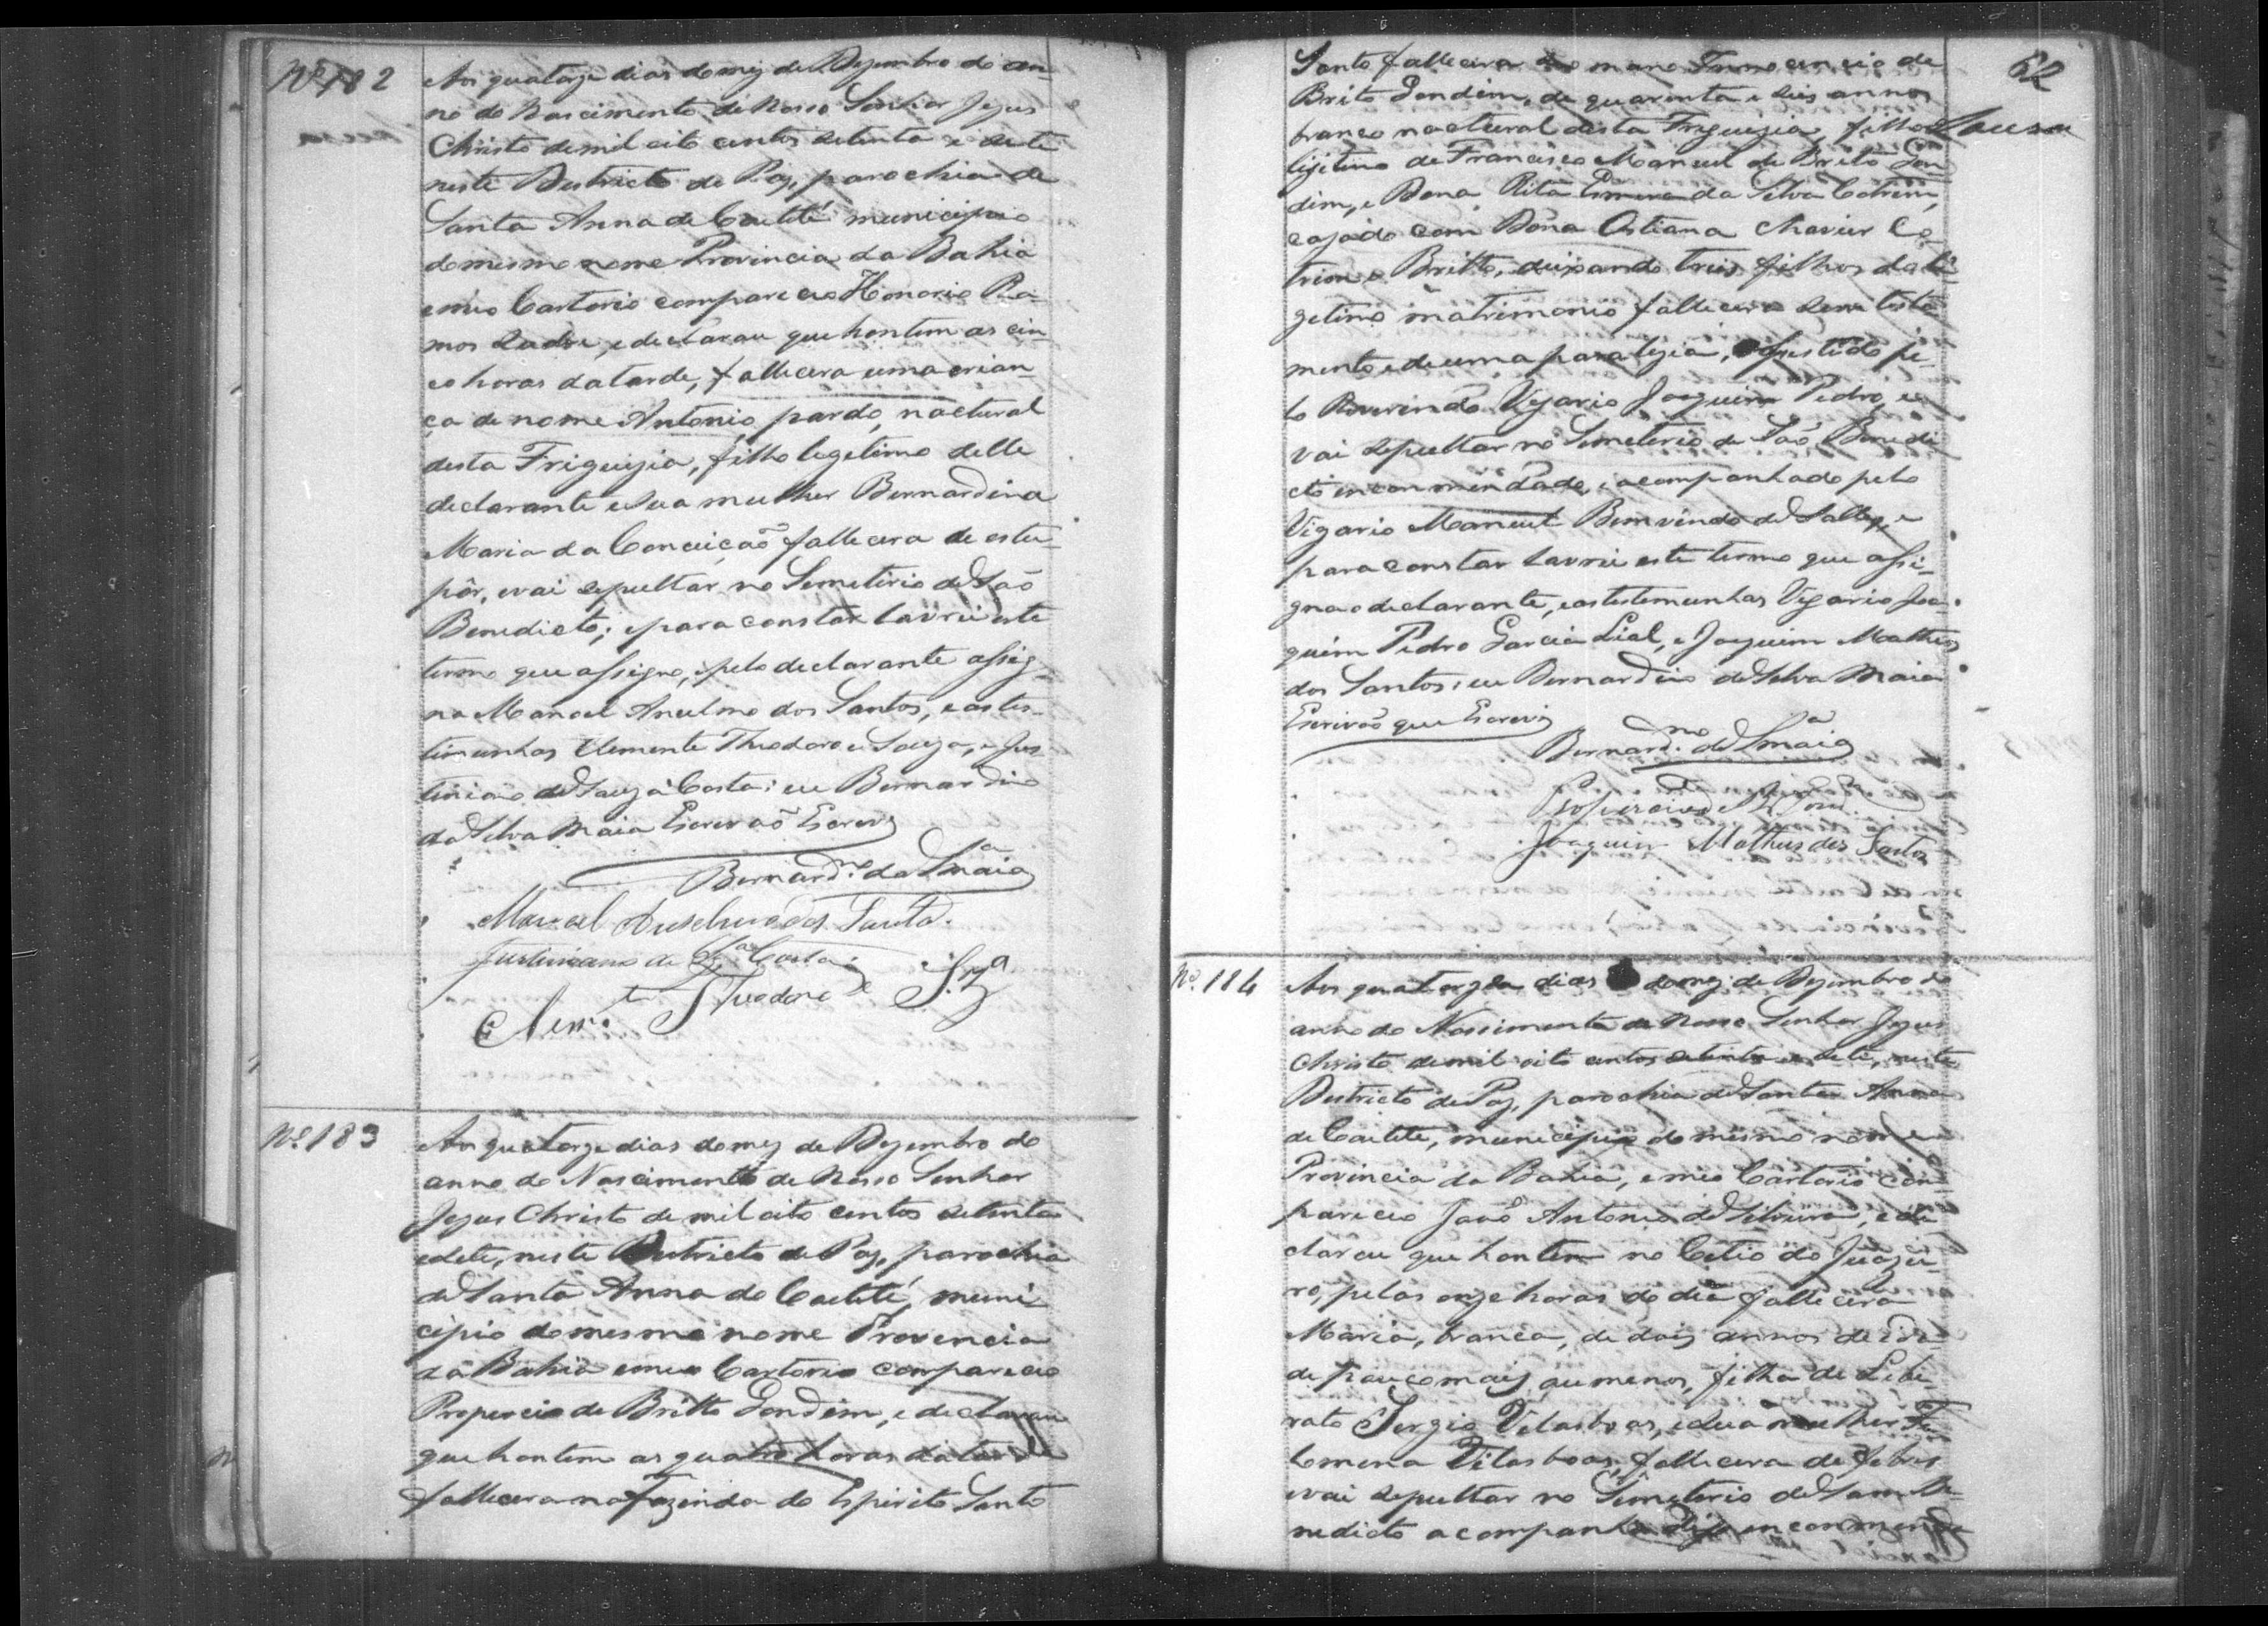 Nº 182
Aos quatorze dias do mez de Dezembro do an-
no do Nascimento de Nosso Senhor Jezus
Christo de mil oito centos setenta e sete
neste Destricto de Paz, parochia de
Santa Anna de Caetité municipio
do mesmo nome Provincia da Bahia
e meo Cartorio compareceo Honorio Ra-
mos , e declarou que hontem as cin-
co horas da tarde, fallecera uma crian-
ça de nome Antonio, pardo, nactural
desta Freguezia, filho legetimo delle
declarante e sua mulher Bernardina
Maria da Conceição fallecera de estu-
pôr, e vai sepultar no Semeterio de São
Benedicto; e para constar lavrei este
termo que assigno, e pelo declarante assig-
na Manoel Anselmo dos Santos, e as tes-
timunhas Clemente Theodoro e Souza, e Jus-
tiniano de Souza Costa; eu Bernardino
da Silva Maia Escrevaõ Escrevi
Bernard.no da S.a Maia
Manoel Anselmo dos Santos.
Justiniano de Sz.a Costa
Clem.te Theodoro e Sz.a
Nº 183
Aos quatorze dias do mez de Dezembro do
anno do Nascimento de Nosso Senhor
Jezus Christo de mil oito centos setenta
e sete, neste Destricto de Paz, parochia
de Santa Anna do Caetité, muni-
cipio do mesmo nome Provencia
da Bahia e meo Cartorio compareceo
Propercio de Britto Gondim, e declarou
que hontem as quatro horas da tarde
fallecera na Fazenda do Espirito Santo
62
Souza
Santo fallecera mano Innocencio de
Brito Gondim, de quarenta e seis annos
branco nactural desta Freguezia, filho
ligitimo de Francisco Manoel de Brito Gon-
dim, e Dona Rita da Silva Cotrim,
cazado com Dona Ostiana Chavier Co-
trim e Britto, deixando tres filhos da le-
getimo matrimonio fallecera sem testa-
mento e de uma paralezia, assestido pe-
lo Reverendo Vigario Joaquim Pedro, e
vai sepultar no Semeterio de São Benedi-
cto encommendado, e acompanhado pelo
Vigario Manoel Bemvindo de Salles, e
para constar lavrei este termo que assi-
gna o declarante, e as testemunhas Vigario Joa-
quim Pedro Garcia Leal, e Joaquim Matheus
dos Santos; eu Bernardino da Silva Maia
Escrivaõ que Escrevi
Bernard.no da S.a Maia
Propercio de B. Gond.im
Joaquim Matheus dos Santos
Nº 184
Aos quatorze dias do mez de Dezembro do
anno do Nassimento de Nosso Senhor Jezus
Christo de mil oito centos setenta e sete, neste
Destricto de Paz, parochia de Santa Anna
de Caetité, municipio do mesmo nome
Provincia da Bahia, e meo Cartorio com-
pareceo João Antonio de Silveira, e de-
clarou que hontem no Cetio do Juazei-
ro, pelas onze horas do dia fallecera
Maria, branca, de dois annos de ida-
de pouco mais ou menos, filha de Libe-
rato Sergio Vilasboas, e sua mulher Fi-
lomena Vilasboas, fallecera de febres
e vai sepultar no Semeterio de Sam Be-
nedicto acompanhada encommenda